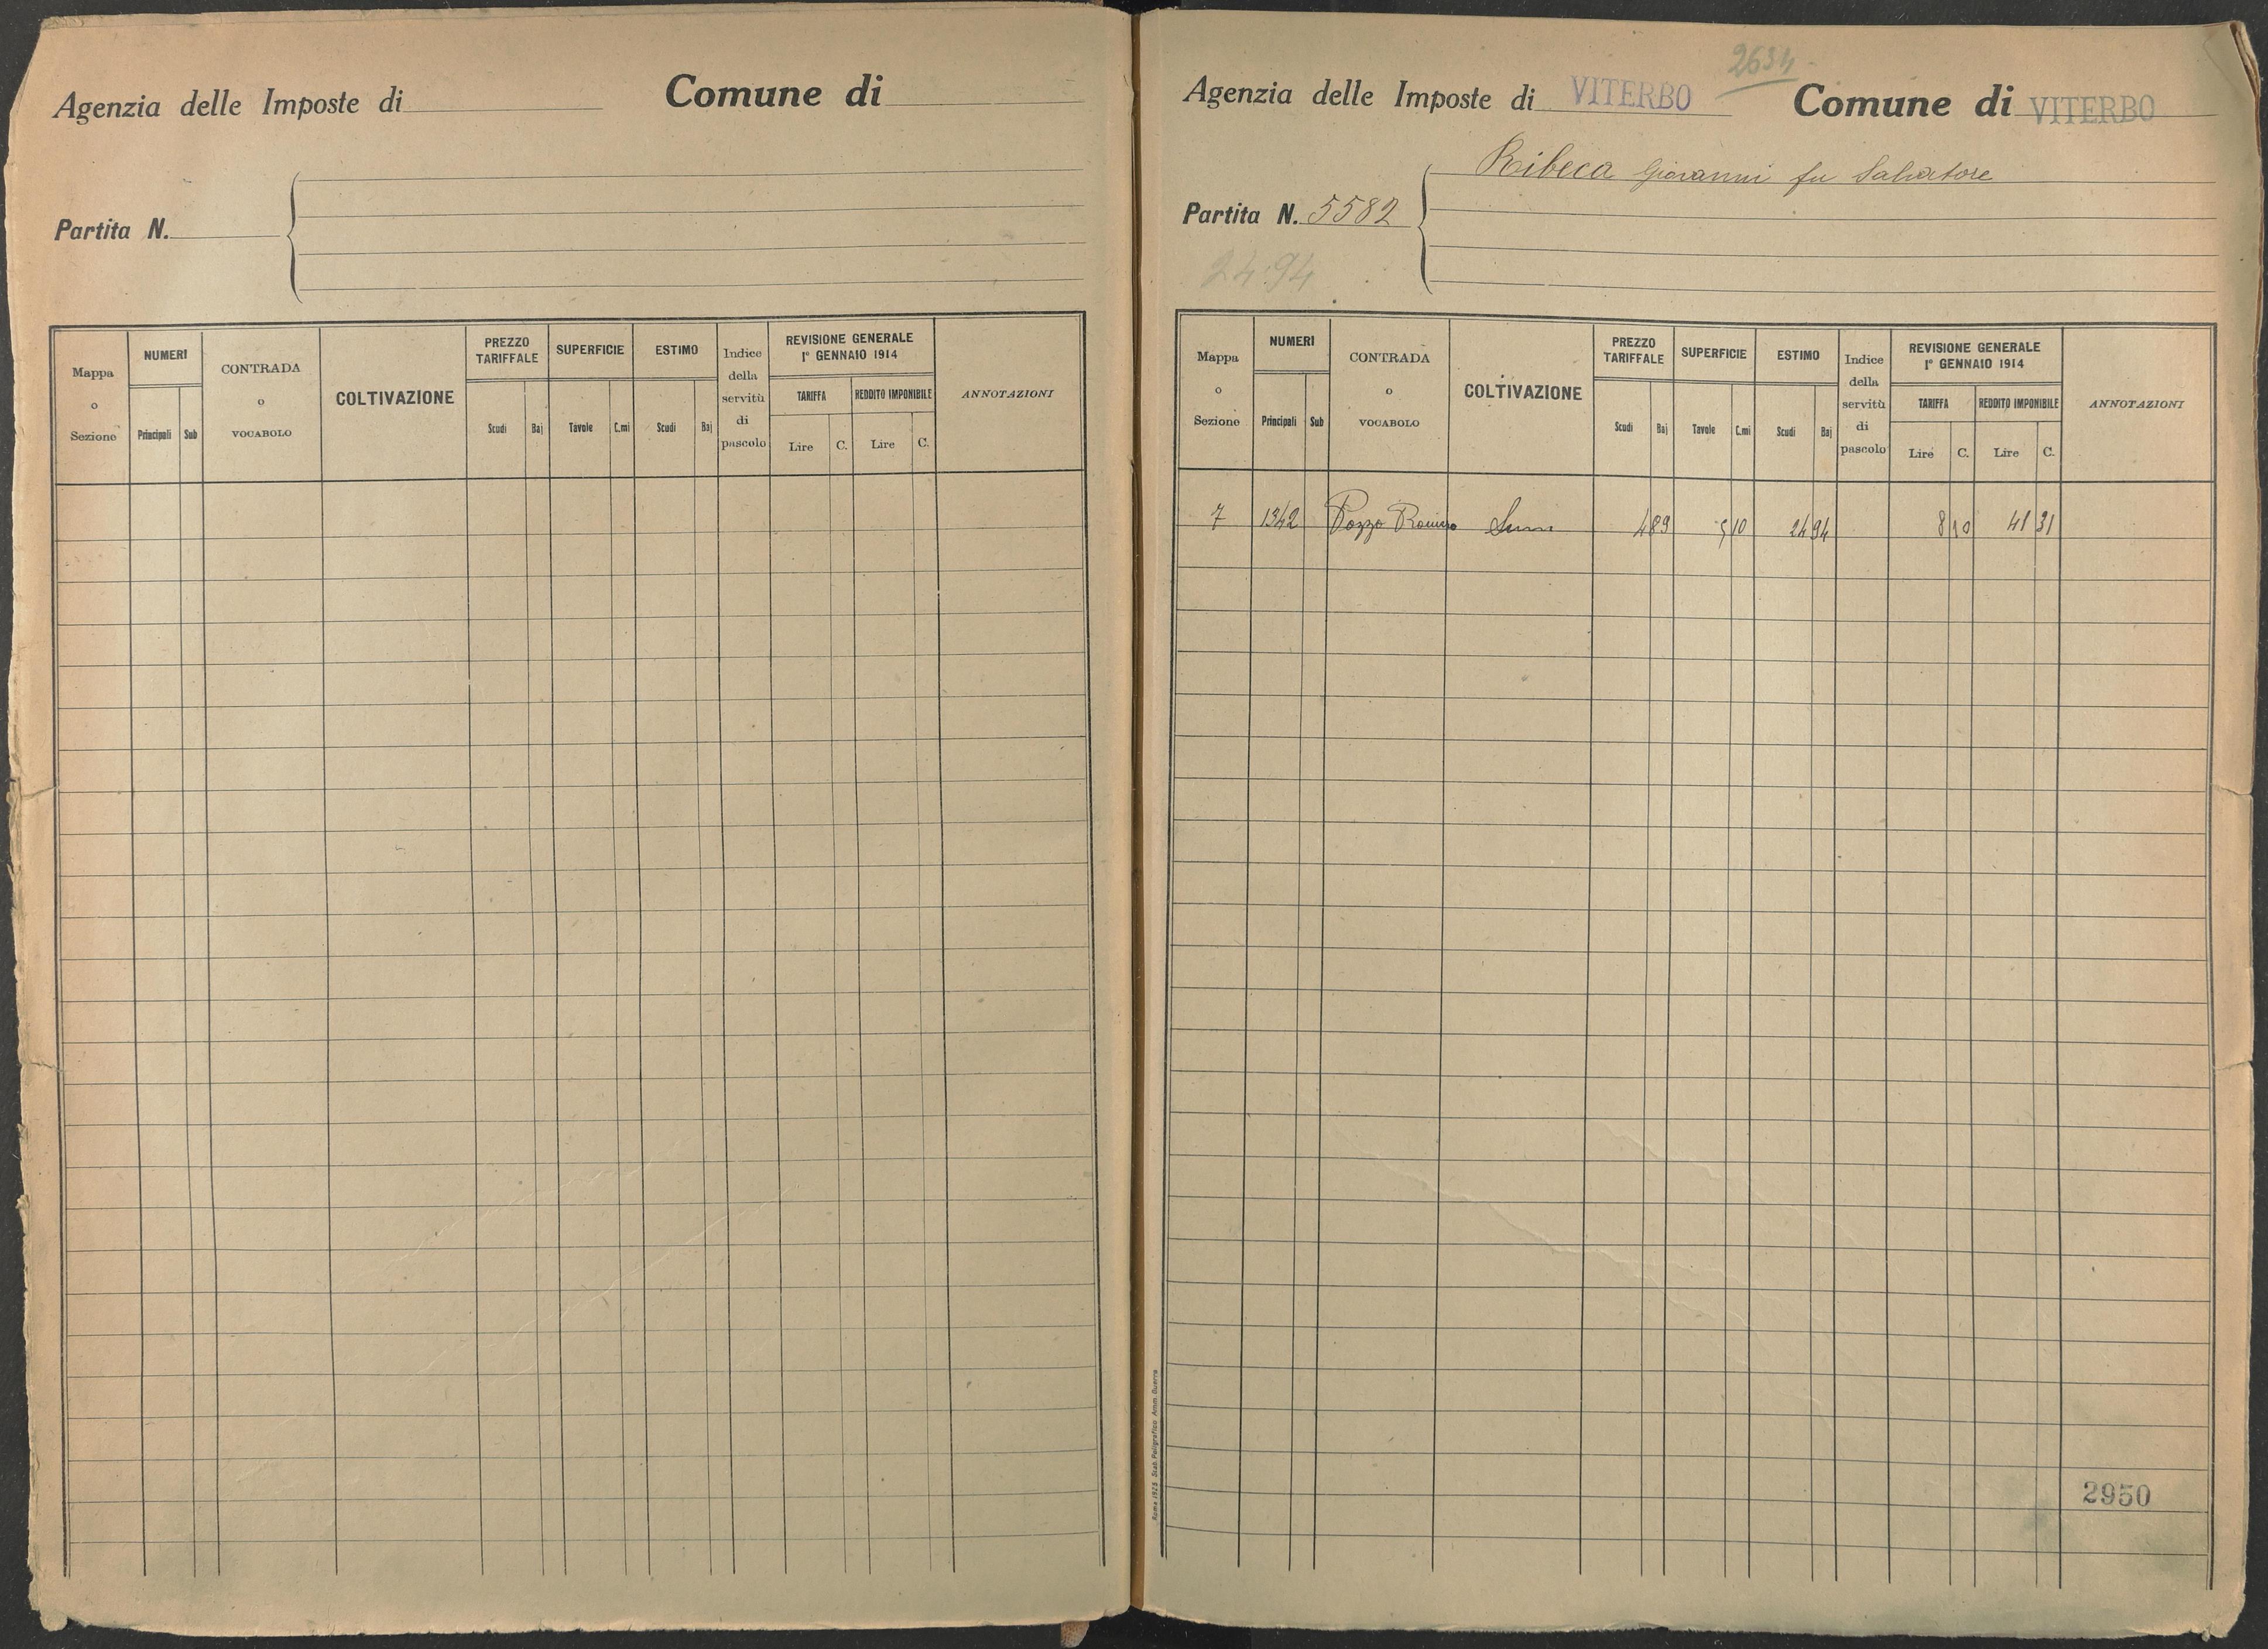 Agenzia delle Imposte di Comune di
Partita N.
Mappa o Sezione NUMERI Principali Sub CONTRADA o VOCABOLO COLTIVAZIONE PREZZO TARIFFALE Scudi Baj SUPERFICIE Tavole C.mi ESTIMO Scudi Baj Indice della servitù di pascolo REVISIONE GENERALE 1° GENNAIO 1914 TARIFFA Lire C. REDDITO IMPONIBILE Lire C. ANNOTAZIONI
2634
Agenzia delle Imposte di VITERBO Comune di VITERBO
Ribeca Giovanni fu Salvatore
Partita N. 5582
24.94
Mappa o Sezione NUMERI Principali Sub CONTRADA o VOCABOLO COLTIVAZIONE PREZZO TARIFFALE Scudi Baj SUPERFICIE Tavole C.mi ESTIMO Scudi Baj Indice della servitù di pascolo REVISIONE GENERALE 1° GENNAIO 1914 TARIFFA Lire C. REDDITO IMPONIBILE Lire C. ANNOTAZIONI
7 1342 Pozzo 4 89 5 10 24 94 8 10 41 31
2950
Roma 1925 Stab. Poligrafico Amm. Guerra